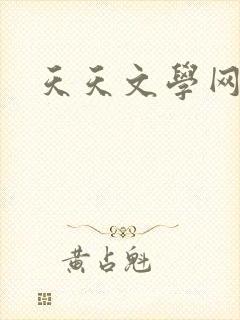 天天文學网
黄占魁